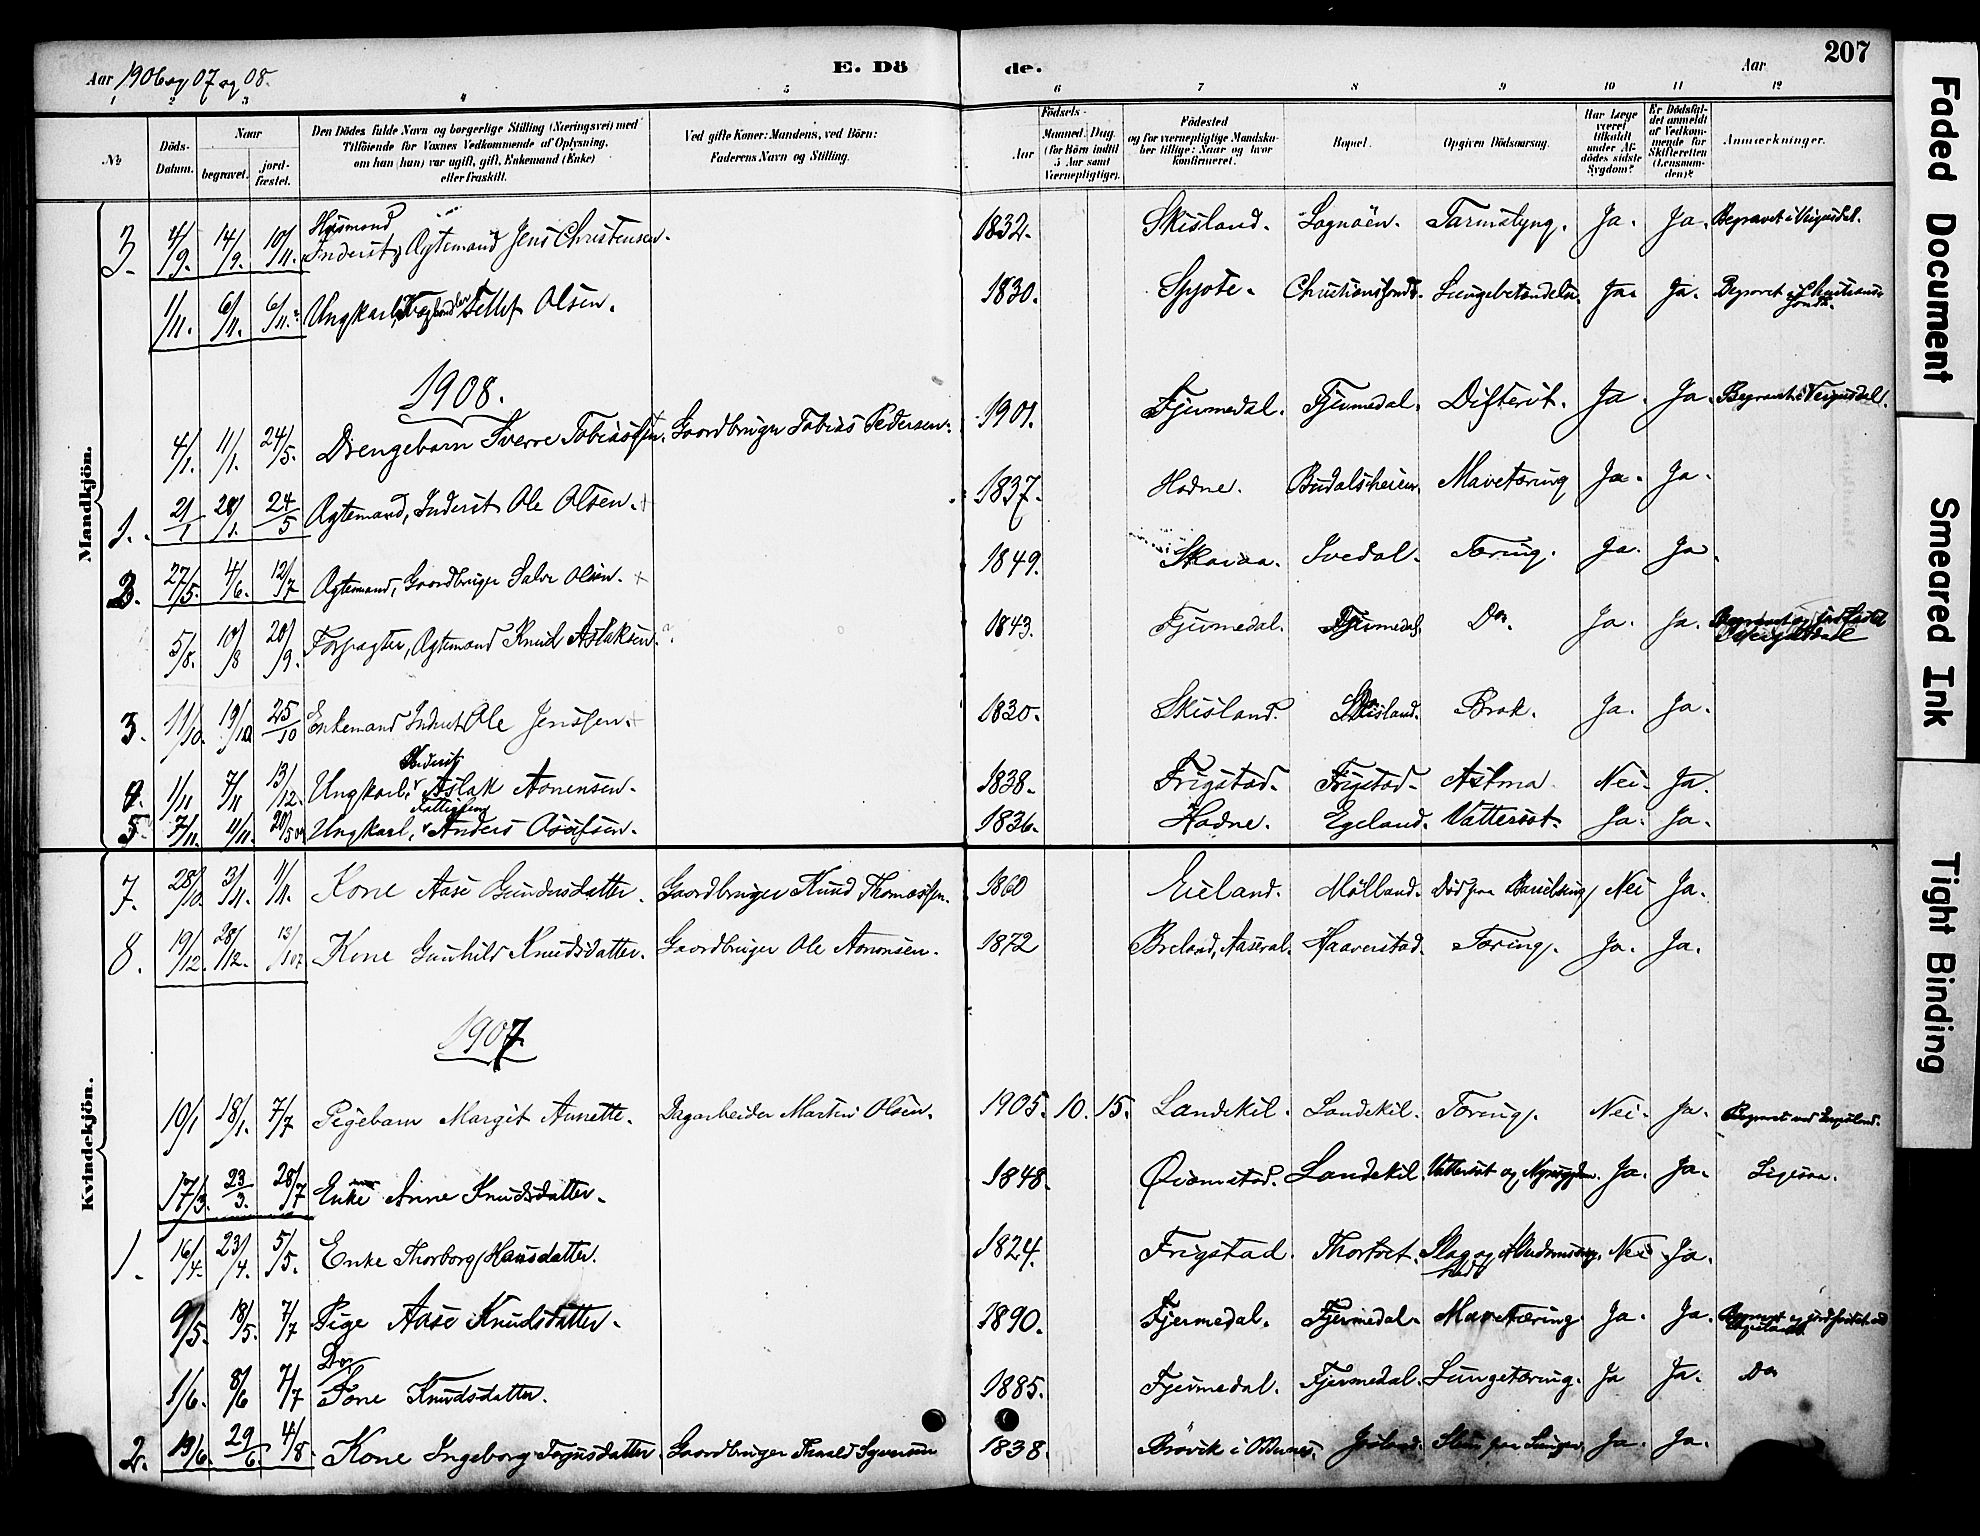 Aar 1906 og 07 og 08.
E. Dö
de.
Aar
207
1 2 3 4 5 6 7 8 9 10 11 12
No
Döds-Datum.
Naar
begravet.
jord-fæstet.
Den Dödes fulde Navn og borgerlige Stilling (Næringsvei) med
Tilföiende for Voxnes Vedkommende af Oplysning,
om han (hun) var ugift, gift, Enkemand (Enke)
eller fraskilt.
Ved gifte Koner: Mandens, ved Börn:
Faderens Navn og Stilling.
Födsels-
Aar
Maaned. Dag.
(for Börn indtil
5 Aar samt
Værnepligtige).
Födested
og for værnepligtige Mandsku-
ber tillige: Naar og hvor
konfirmeret.
Bopæl.
Opgiven Dödsaarsag.
Har Læge
været
tilkaldt
under Af-
dödes sidste
Sygdom?
Er Dödsfal-
det anmeldt
af Vedkom-
mende for
Skifteretten
(Lensman-
den)?
Anmærkninger.
Mandkjön.
Husmand
3. 4/9. 14/9. 10/11. Inderst, Ægtemand Jens Christensen. 1832. Skisland. Lognåen. Tarmslyng. Ja. Ja. Begravet i Veigusdal.
1/11. 6/11. 6/11. Ungkarl, Tellef Olsen. 1830. Spjote. Christianssands. Lungebetændelse. Ja. Ja. Begravet i Christianssands.
1908.
4/1. 11/1. 24/5. Drengebarn Sverre Tobiassen. Gaardbruger Tobias Pedersen. 1901. Fjermedal. Fjermedal. Difterit. Ja. Ja. Begravet i Veigusdal.
1. 21/1 28/1. 24/5 Ægtemand, Inderst Ole Olsen. 1837. Hodne. Budalsheien. Mavetæring Ja. Ja.
2. 27/5. 4/6. 12/7 Ægtemand, Gaardbruger Salve Olsen. 1849. Skaiaa. Ivedal. Tæring. Ja. Ja.
5/8. 10/8 20/9. Forpagter, Ægtemand Knud Aslaksen. 1843. Fjermedal. Fjermedal. Do. Ja. Ja.
3. 11/10. 19/10 25/10 Enkemand Inderst Ole Jenssen. 1830. Skisland. Skisland. Brok. Ja. Ja.
Inderst
4. 1/11 7/11 13/12. Ungkarl, Aslak Aanensen. 1838. Frigstad. Frigstad. Astma Nei. Ja.
Fattiglem
5. 7/11. 11/11. Ungkarl, Anders Osufsen. 1836. Hodne. Egeland. Vattersot. Ja. Ja.
Kvindekjön.
7. 28/10. 3/11. 1/11. Kone Aase Gundersdatter. Gaardbruger Knud Thomassen. 1860 Eieland. Mölland. Död paa Barselseng Nei Ja.
8. 19/12. 28/12. 13/1 07 Kone Gunhild Knudsdatter. Gaardbruger Ole Aanonsen. 1872 Breland, Aaseral. Haaverstad. Tæring. Ja. Ja.
1907.
10/1 18/1. 7/7 Pigebarn Margit Annette. Dagarbeider Martin Olsen. 1905. 10. 15. Landskil. Landskil. Tæring. Nei. Ja. Begravet ved Engesland.
17/3. 23/3. 28/7 Enke Anne Knudsdatter. 1848. Qvamstad. Landskil. Vattersot og Nyresygdom. Ja. Ja. Ligesaa.
1. 16/4. 23/4. 5/5. Enke Thorborg Hansdatter. 1824. Frigstad. Thortveit. Slag og Alderdomssvaghed. Nei Ja.
9/5. 18/5. 7/7 Pige Aase Knudsdatter. 1890. Fjermedal. Fjermedal. Mavetæring Ja. Ja.
Do.
1/6. 8/6 7/7 Tone Knudsdatter. 1885. Fjermedal. Fjermedal. Lungetæring. Ja Ja. Do
2. 19/6. 29/6. 4/8. Kone Ingeborg Torjusdatter. Gaardbruger Syversen 1838. Brövik i Oddernes. Ja. Ja.
Faded Document
Smeared Ink
Tight Binding